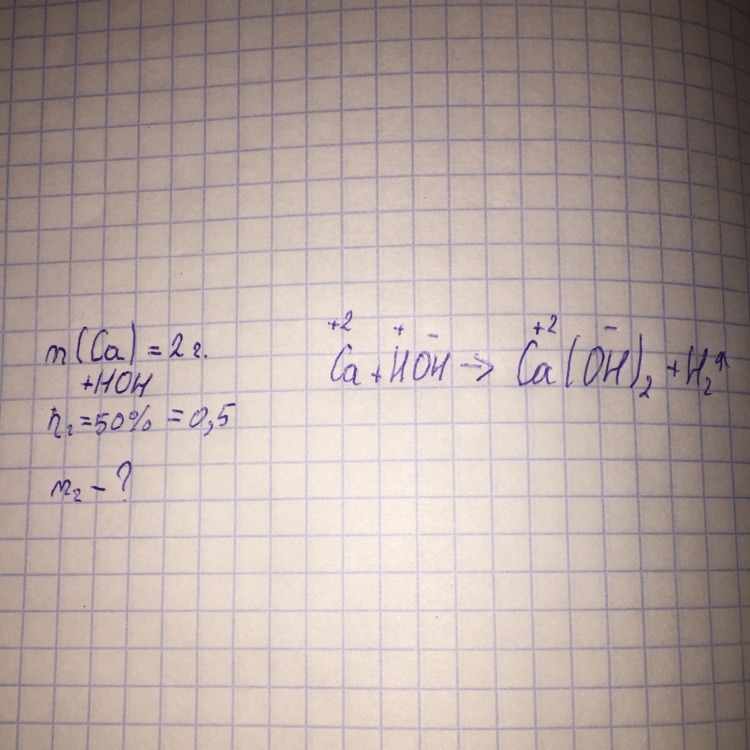 m(Ca) = 2 г.
+HOH
η₂ = 50% = 0,5
m₂ - ?
+2 + − +2 −
Ca + HOH → Ca(OH)₂ + H₂↑